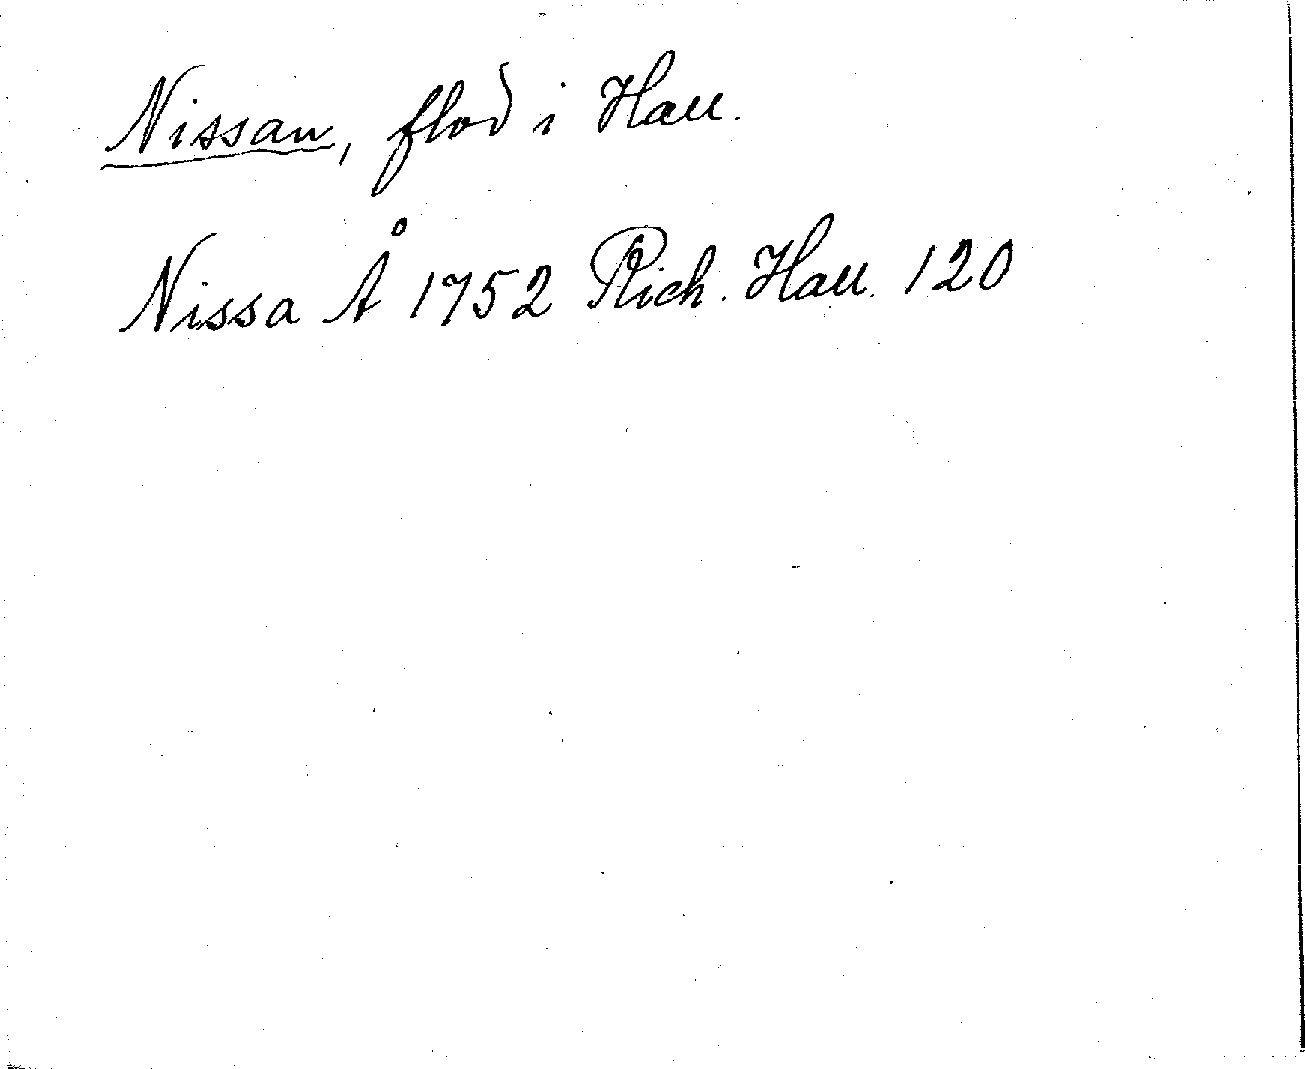 Nissan, flod i Hall.
Nissa Å 1752 Rich. Hall. 120